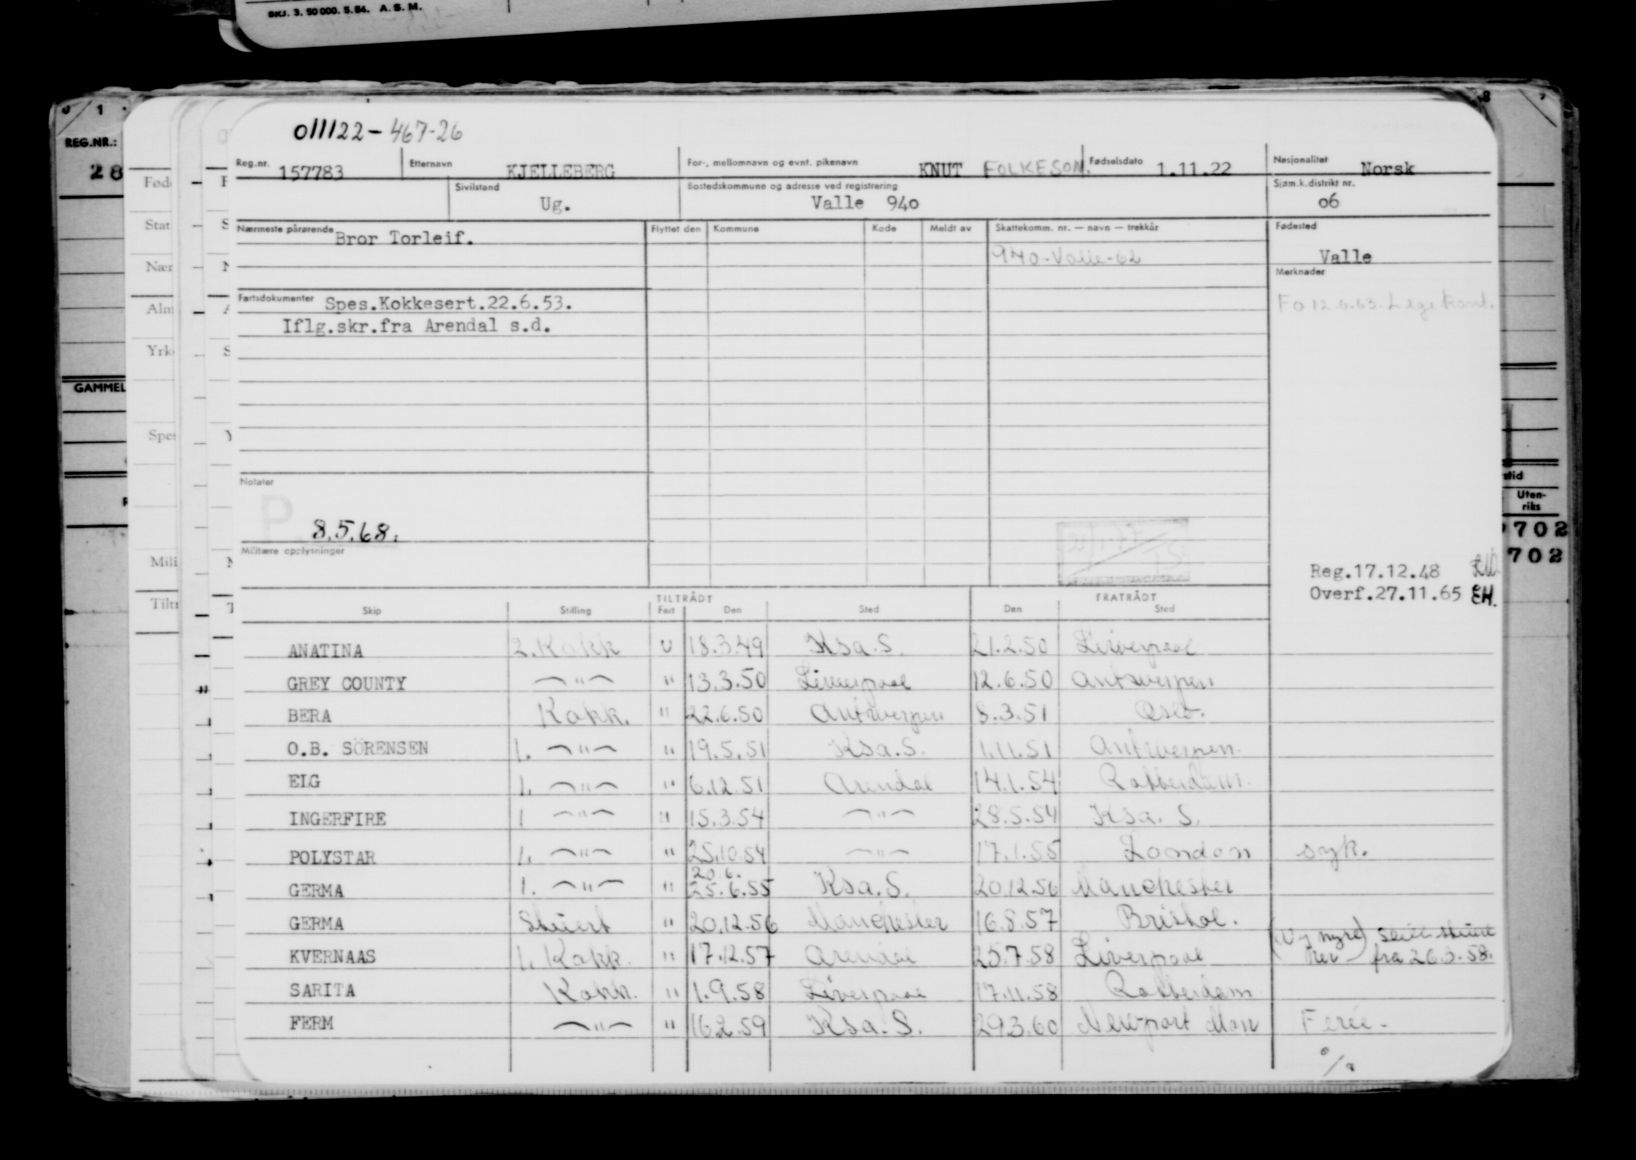 SKJ. 3. 50000. 5.64. A. S. M.
REG.NR.:
28
GAMMEL
011122-467-26
Reg.nr. 157783 Etternavn KJELLEBERG For-, mellomnavn og evnt. pikenavn KNUT FOLKESON. Fødselsdato 1.11.22 Nasjonalitet Norsk
Sivilstand Ug. Bostedskommune og adresse ved registrering Valle 940 Sjøm.k.distrikt nr. 06
Nærmeste pårørende Bror Torleif. Flyttet den Kommune Kode Meldt av Skattekomm. nr. — navn — trekkår Fødested
940-Valle-62 Valle
Merknader
Fartsdokumenter Spes.Kokkesert.22.6.53.
Iflg.skr.fra Arendal s.d.
Notater
P
8.5.68.
Militære opplysninger
Reg.17.12.48
Overf.27.11.65 EH.
Uten-
riks
702
702
TILTRÅDT FRATRÅDT
Skip Stilling Fart Den Sted Den Sted
ANATINA 2. Kokk U 18.3.49 Ksa.S. 21.2.50 Liverpool
GREY COUNTY —"— " 13.3.50 Liverpool 12.6.50 Antwerpen
BERA Kokk. " 22.6.50 Antwerpen 8.3.51 Oslo.
O.B. SÖRENSEN 1. —"— " 19.5.51 Ksa.S. 1.11.51 Antwerpen.
ELG 1. —"— " 6.12.51 Arendal 14.1.54 Rotterdam.
INGERFIRE 1 —"— " 15.3.54 —"— 28.5.54 Ksa. S.
POLYSTAR 1. —"— " 25.10.54 —"— 17.1.55 London syk.
20.6.
GERMA 1. —"— " 25.6.55 Ksa.S. 20.12.56 Manchester
GERMA Stuert " 20.12.56 Manchester 16.8.57 Bristol.
KVERNAAS 1. Kokk. " 17.12.57 Arendal 25.7.58 Liverpool fra 26.3.58.
SARITA Kokk. " 1.9.58 Liverpool 17.11.58 Rotterdam
FERM —"— " 16.2.59 Ksa.S. 29.3.60 Newport Mon Ferie.